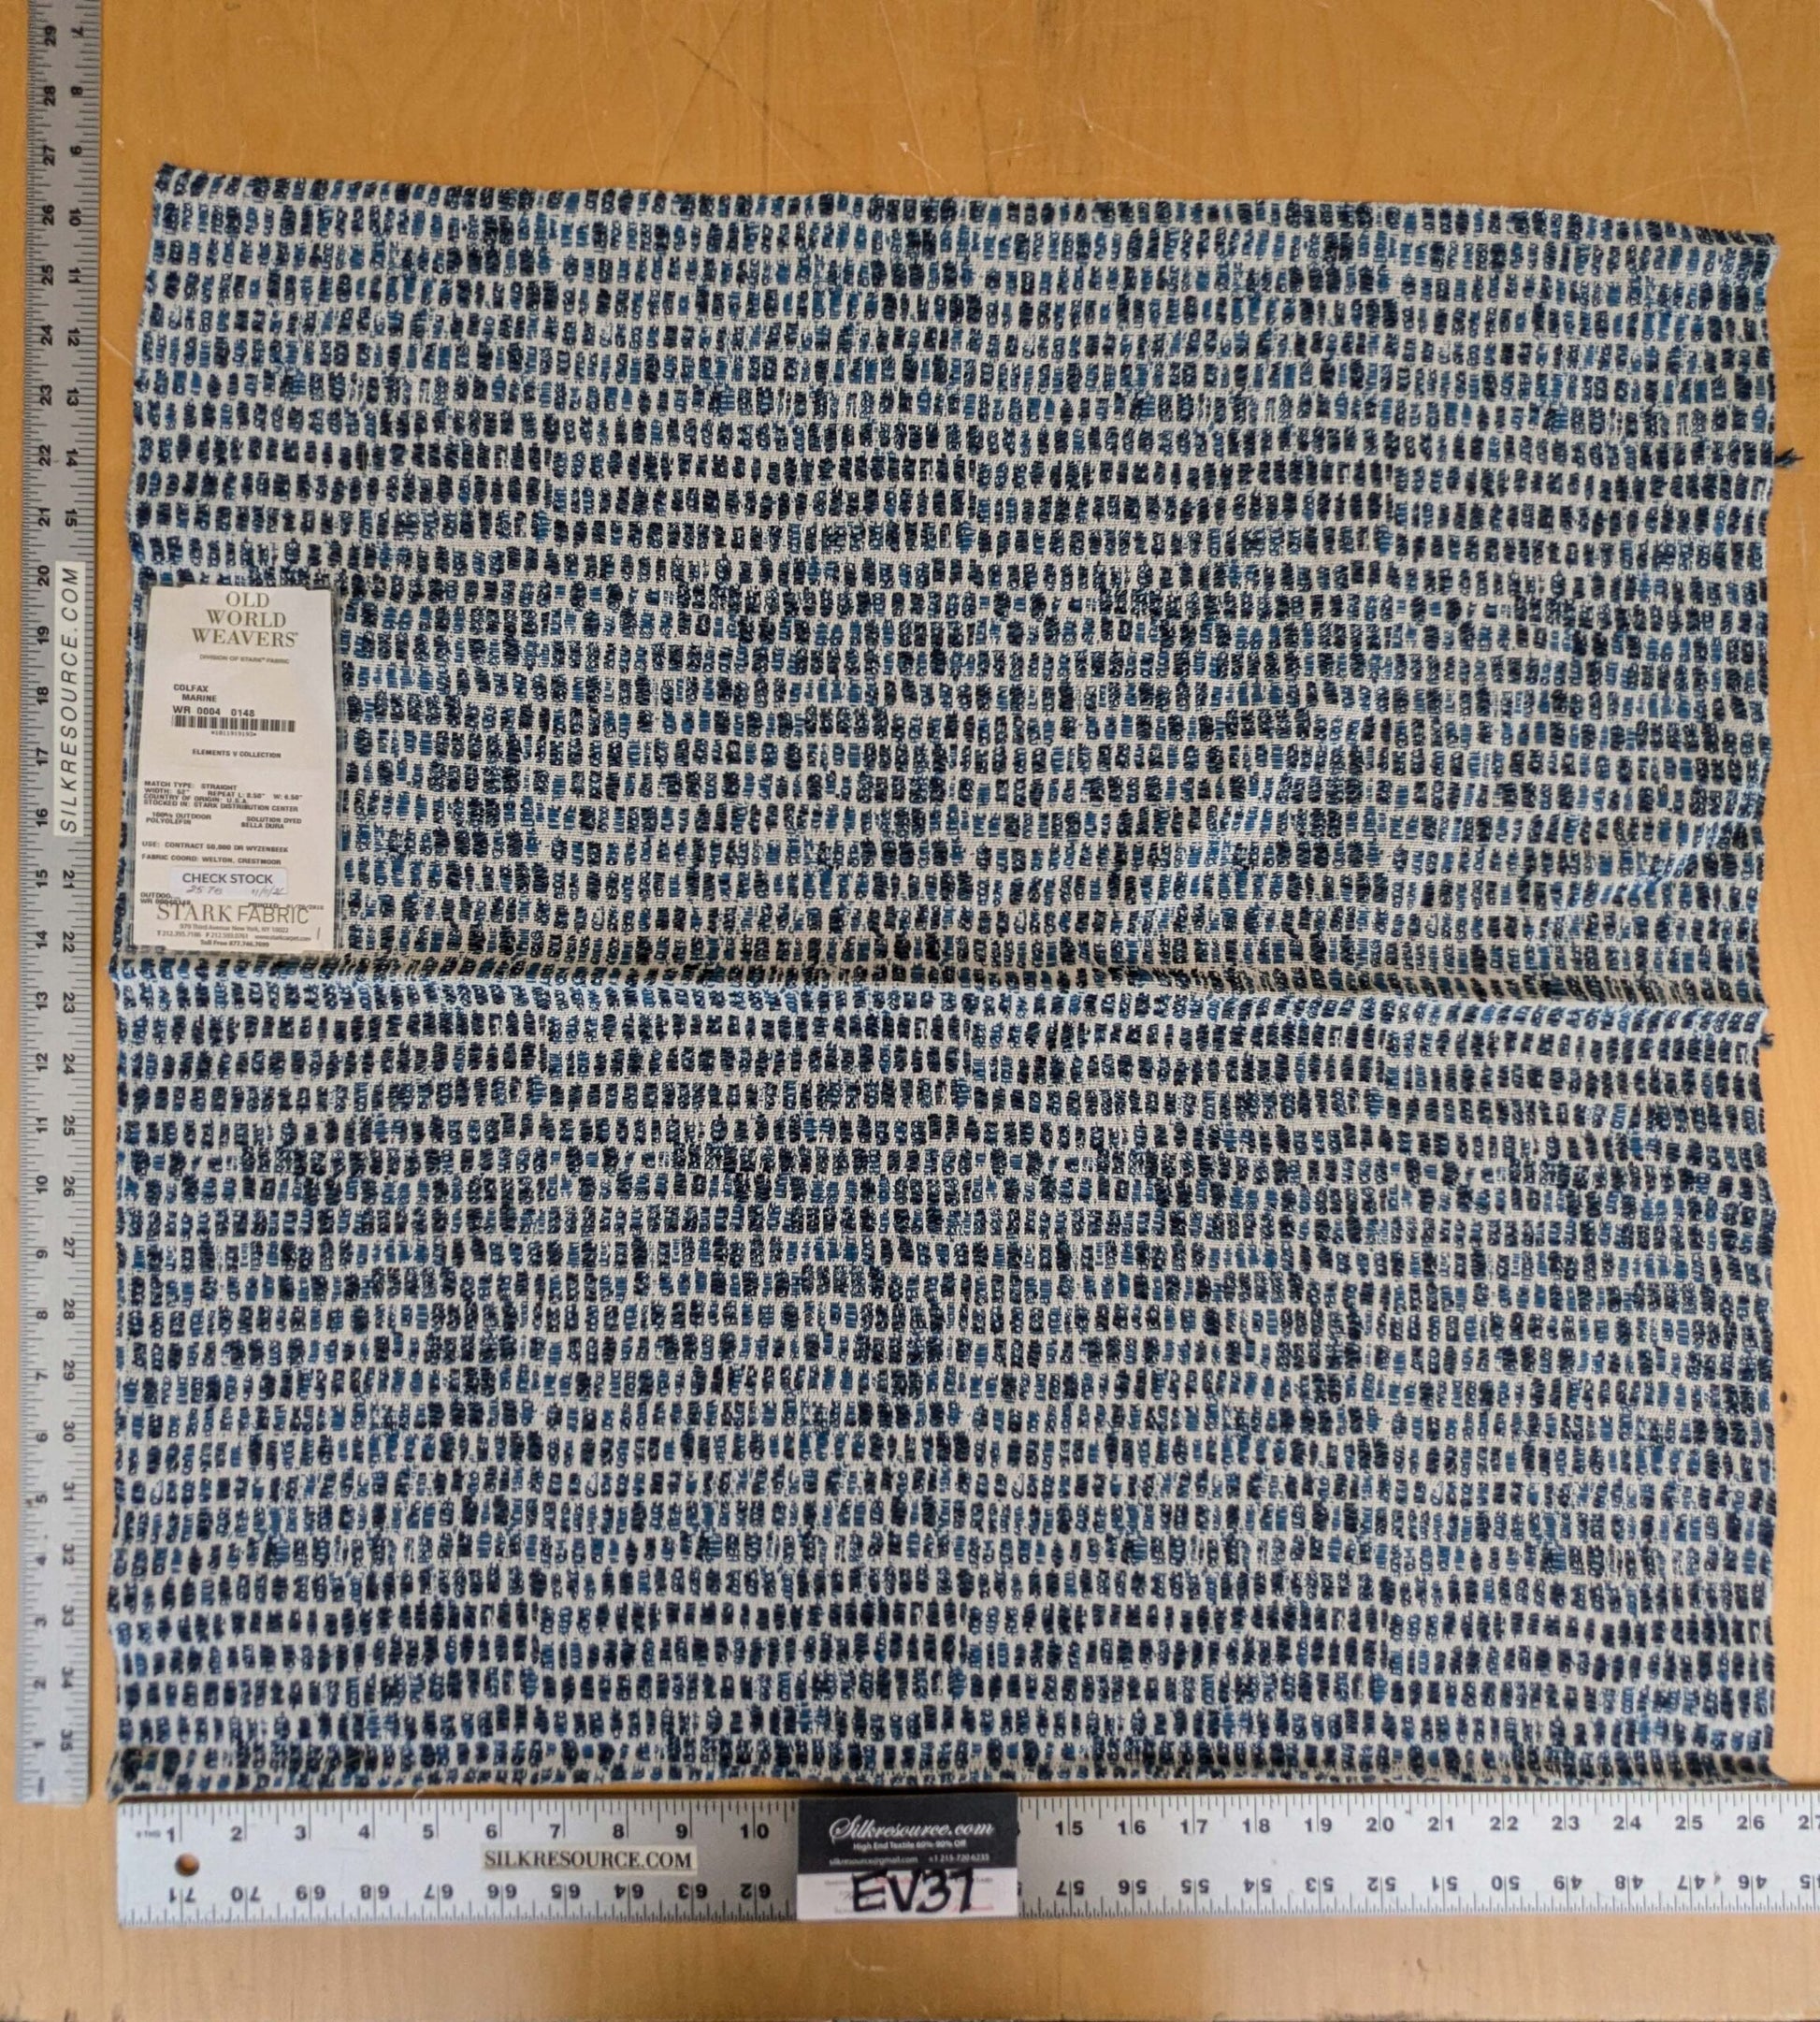 OLD
WORLD
WEAVERS®
DIVISION OF STARK® FABRIC
COLFAX
MARINE
WR 0004 0148
ELEMENTS V COLLECTION
MATCH TYPE: STRAIGHT
WIDTH: 52" REPEAT L: 8.50" W: 6.50"
COUNTRY OF ORIGIN: U.S.A.
STOCKED IN: STARK DISTRIBUTION CENTER
100% OUTDOOR SOLUTION DYED
POLYOLEFIN BELLA DURA
USE: CONTRACT 50,000 DR WYZENBEEK
FABRIC COORD: WELTON, CRESTMOOR
CHECK STOCK
STARK FABRIC
979 Third Avenue New York, NY 10022
Toll Free 877.746.7699
SILKRESOURCE.COM
29 28 27 26 25 24 23 22 21 20 19 18 17 16 15 14 13 12 11 10 9 8 7 6 5 4 3 2 1
7 8 9 10 11 12 13 14 15 21 22 23 24 25 26 27 28 29 30 31 32 33 34 35
1 2 3 4 5 6 7 8 9 10 15 16 17 18 19 20 21 22 23 24 25 26
SILKRESOURCE.COM
71 70 69 68 67 66 65 64 63 62 57 56 55 54 53 52 51 50 49 48 47 46
Silkresource.com
High End Textile 60%-90% Off
silkresource@gmail.com +1 215-720-6235
EV37